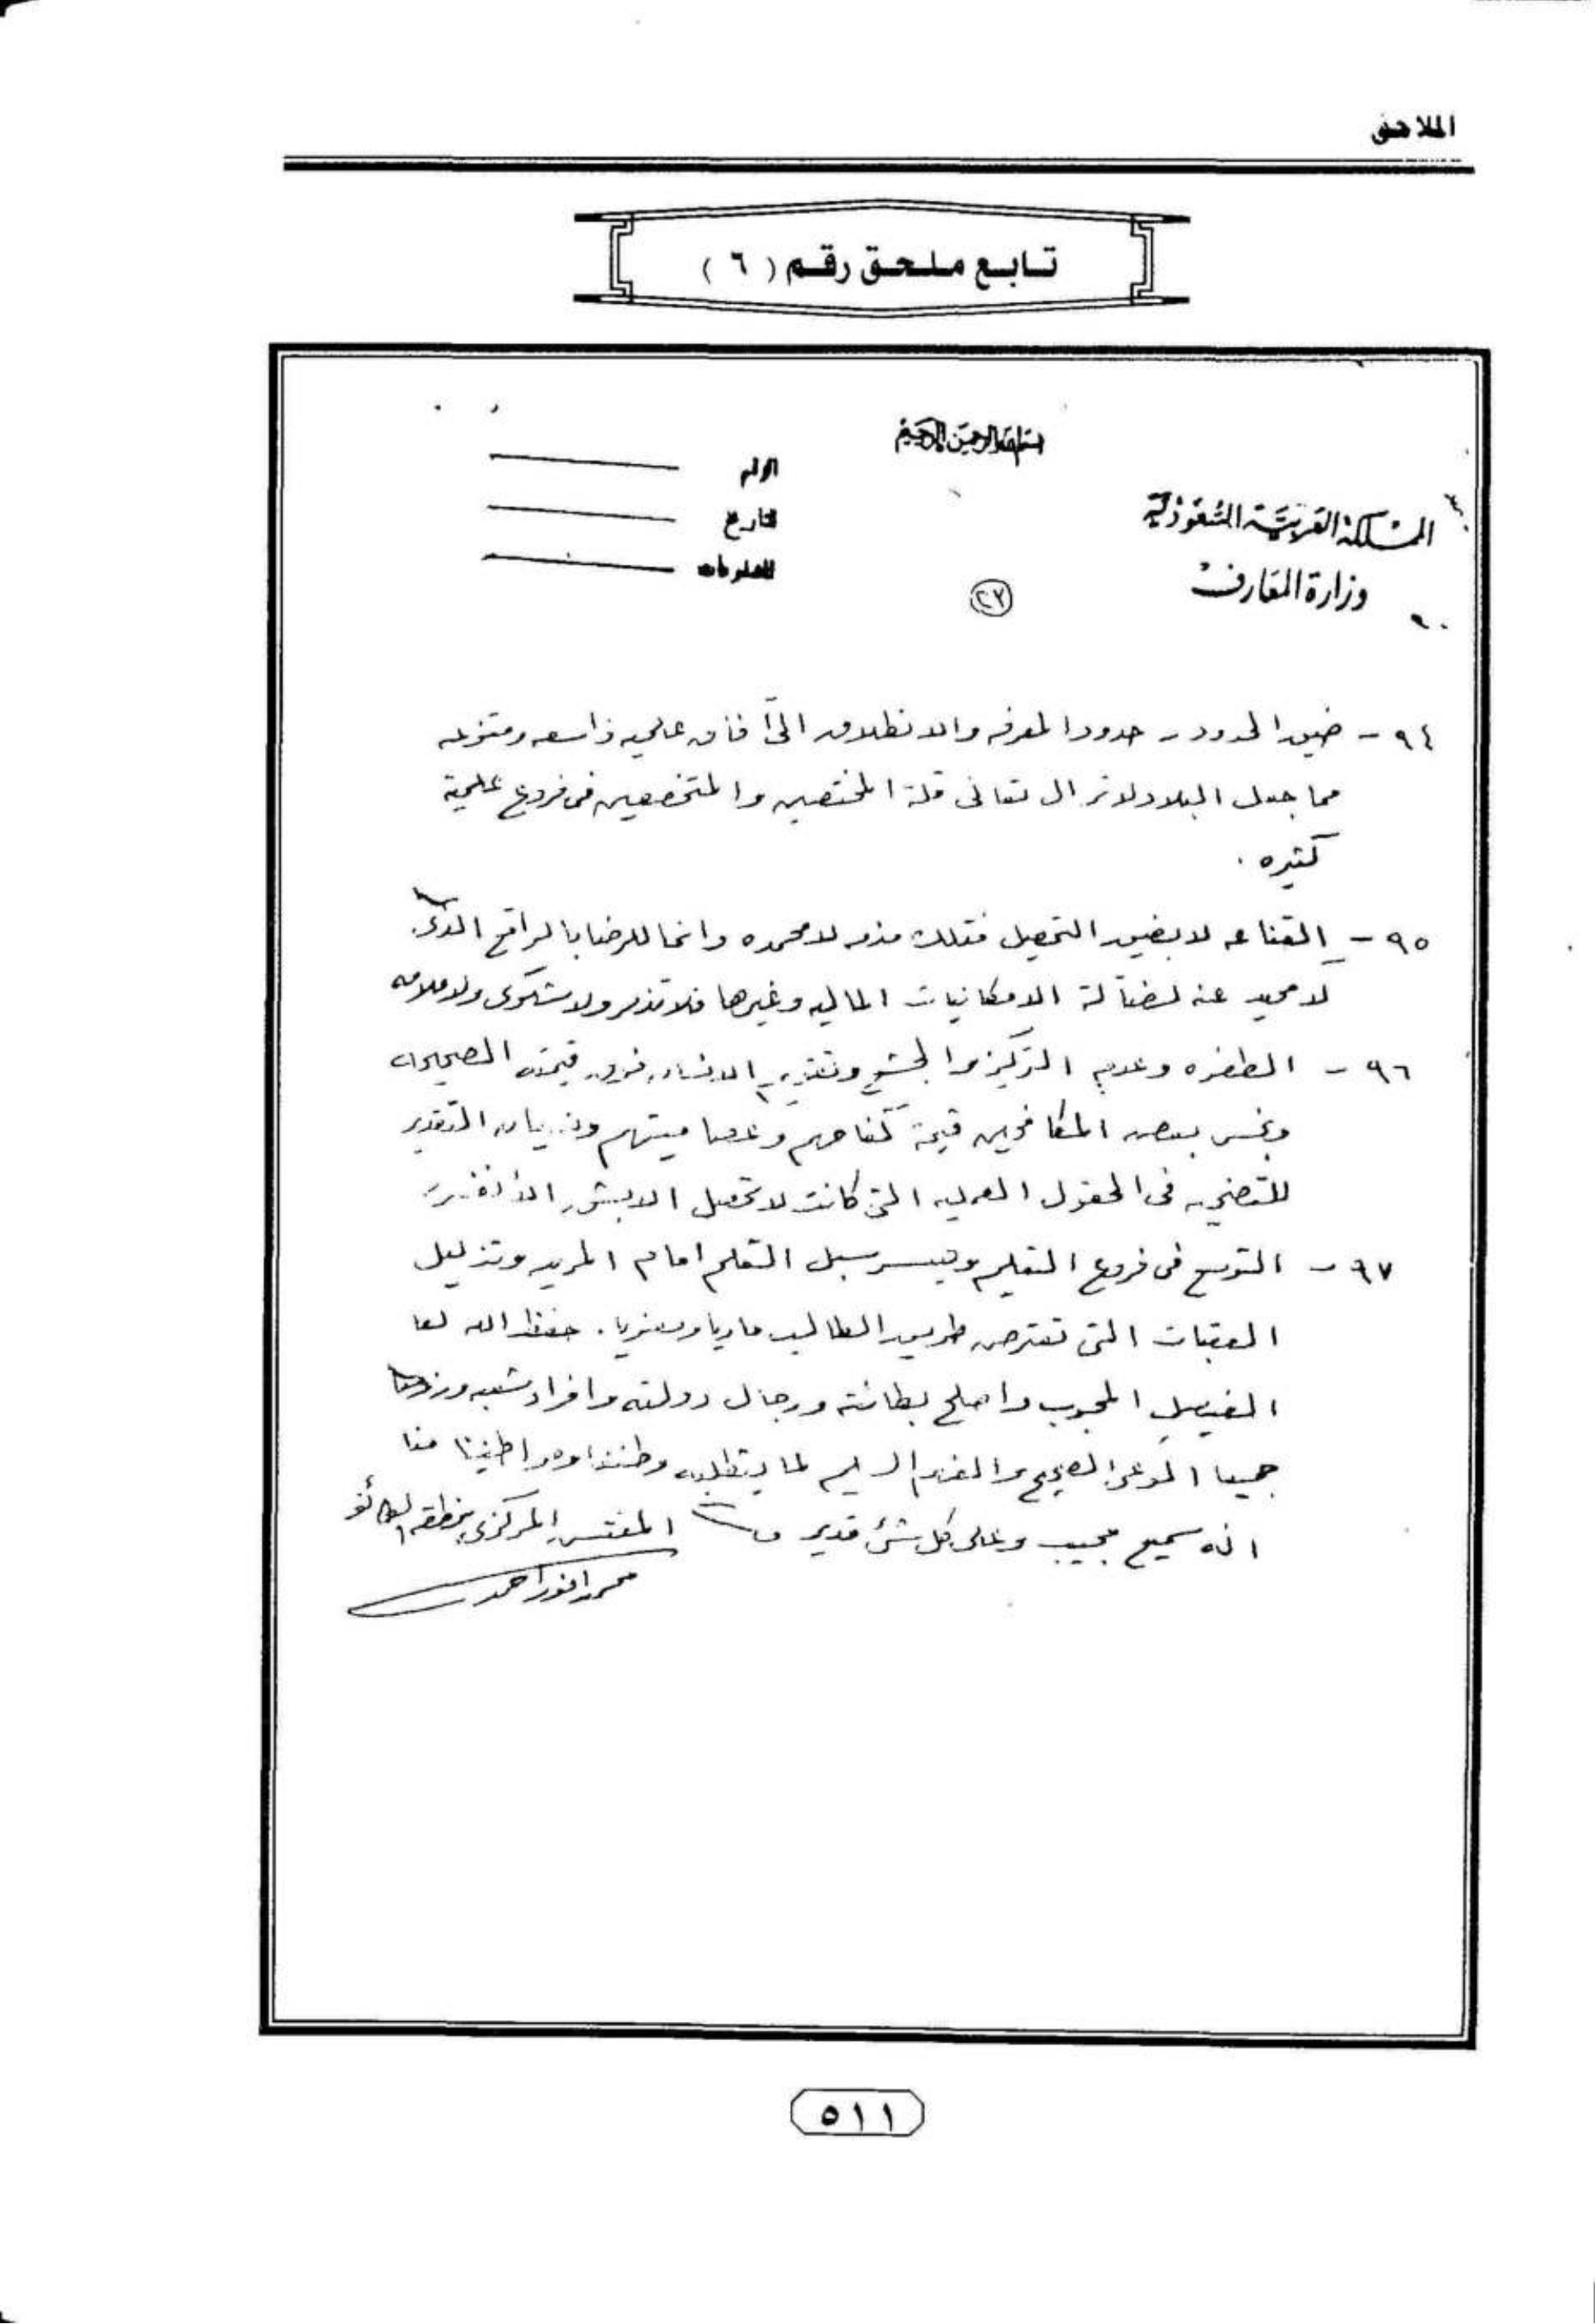 الملاحق
تابع ملحق رقم ( ٦ )
بسم الله الرحمن الرحيم
المملكة العربية السعودية
وزارة المعارف
الرقم
التاريخ
المعلومات
٢٣
٩٤ - ضيق الحدود - حدود المعرفه والانطلاق الى آفاق علميه واسعه ومتنوعه
مما جعل البلاد لا تزال تعانى قلة المختصين والمتخصصين فى فروع علمية
كثيره .
٩٥ - القناعه لا بضيق التحصيل فتلك مذمه لا محمده وانما للرضا بالواقع الذى
لا محيد عنه لضآلة الامكانيات الماليه وغيرها فلا تذمر ولا شكوى ولا ملامه
٩٦ - الطفره وعدم التركيز والجشع وتقدير الانسان فوق قيمته الصحيحه
وبخس بعض المكافحين قيمة كفاحهم وعصاميتهم ونسيان التقدير
للتضحيه فى الحقول العلميه التى كانت لا تحصل الا بشق الأنفس
٩٧ - التوسع فى فروع التعليم وتيسر سبل التعلم امام المريد وتذليل
العقبات التى تعترض طريق الطالب ماديا ومعنويا . حفظ الله لنا
الفيصل المحبوب واصلح بطانته ورجال دولته وافراد شعبه ورزقنا
جميعا الوعى الصحيح والفهم السليم لما يتطلبه وطننا ومواطنينا منا
انه سميع مجيب وعلى كل شئ قدير
المفتش المركزى بمنطقة الطائف
محمد انور احمد
٥١١